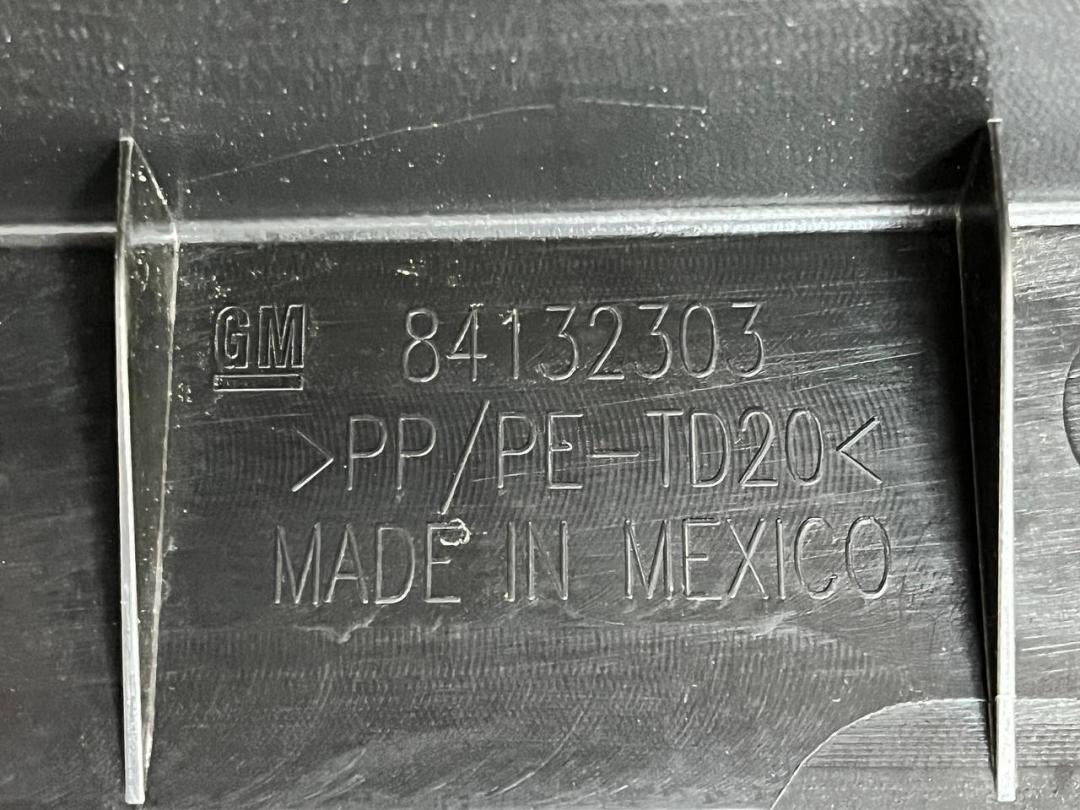 GM 84132303
>PP/PE-TD20<
MADE IN MEXICO